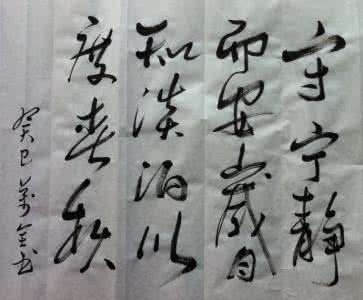 守宁静
而安岁月
知淡泊以
度春秋
癸巳万金书